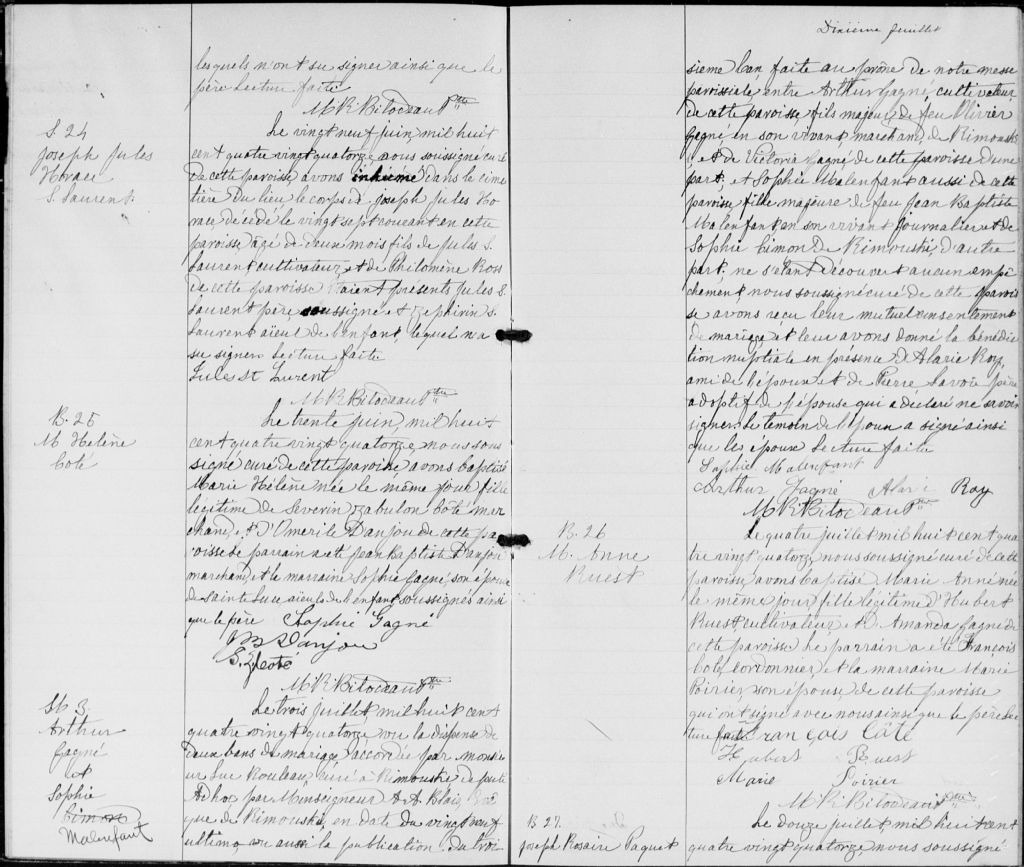 lesquels n'ont su signer ainsi que le
père Lecture faite
M R Bilodeau Ptre
S. 24
Joseph Jules
Horace
S. Laurent
Le vingt neuf juin, mil huit
cent quatre vingt quatorze nous soussigné curé
de cette paroisse, avons inhumé dans le cime
tière du lieu le corps de joseph Jules Ho
race, décédé le vingt sept courant en cette
paroisse, agé de deux mois fils de Jules S.
Laurent cultivateur et de Philomène Ross
de cette paroisse Etaient présents Jules S.
Laurent père soussigné et Zephirin S.
Laurent aïeul de l'enfant, lequel n'a
su signer Lecture faite
Jules St Laurent
M R Bilodeau Ptre
B. 25
M Helène
Coté
Le trente juin, mil huit
cent quatre vingt quatorze, nous sous
signé curé de cette paroisse avons baptisé
Marie Hélène née le même jour fille
légitime de Severin Zabulon Côté mar
chand, et D'Omerile Danjou de cette pa
roisse Le parrain a été Jean Baptiste Danjou
marchand, et la marraine Sophie Gagné, son épouse
de Sainte Luce aïeuls de l'enfant soussignés ainsi
que le père Sophie Gagné
JB Danjou
S. Z Coté
M R Bilodeau Ptre
M 3.
Arthur
Gagné
et
Sophie
Cimon
Malenfant
Le trois juillet, mil huit cent
quatre vingt quatorze vu la dispense de
deux bans de mariage, accordée par monsie
ur Luc Rouleau, curé à Rimouski député
Ad hoc par Monseigneur A. A. Blais, Evê
que de Rimouski, en date du vingt neuf
ultimo vu aussi la publication du troi
Dixième feuillet
sième ban, faite au prône de notre messe
paroissiale, entre Arthur Gagné, cultivateur
de cette paroisse fils majeur de feu Olivier
Gagné en son vivant, marchand, de Rimouski
et de Victoria Gagné de cette paroisse d'une
part; et Sophie Malenfant aussi de cette
paroisse, fille majeure de feu Jean Baptiste
Malenfant en son vivant journalier et de
Sophie Cimon de Rimouski, d'autre
part: ne s'étant découvert aucun empê
chement, nous soussigné curé de cette parois
se avons reçu leur mutuel consentement
de mariage et leur avons donné la bénédic
tion nuptiale en présence d'Alarie Roy,
ami de l'époux et de Pierre Savoie père
adoptif de l'épouse qui a déclaré ne savoir
signer Le témoin de l'époux a signé ainsi
que les époux Lecture faite
Sophie Malenfant
Arthur Gagné Alari Roy
M R Bilodeau Ptre
B. 26
M. Anne
Ruest
Le quatre juillet, mil huit cent qua
tre vingt quatorze, nous soussigné curé de cette
paroisse avons baptisé Marie Anne née
le même jour fille légitime d'Hubert
Ruest cultivateur et D Amanda Gagné de
cette paroisse Le parrain a été François
Coté, Cordonnier, et la marraine Marie
Poirier son épouse de cette paroisse
qui ont signé avec nous ainsi que le père Lec
ture faite François Côté
Hubert Ruest
Marie Poirier
M R Bilodeau Ptre
B 27.
Joseph Rosaire Paquet
Le douze juillet, mil huit cent
quatre vingt quatorze, nous soussigné